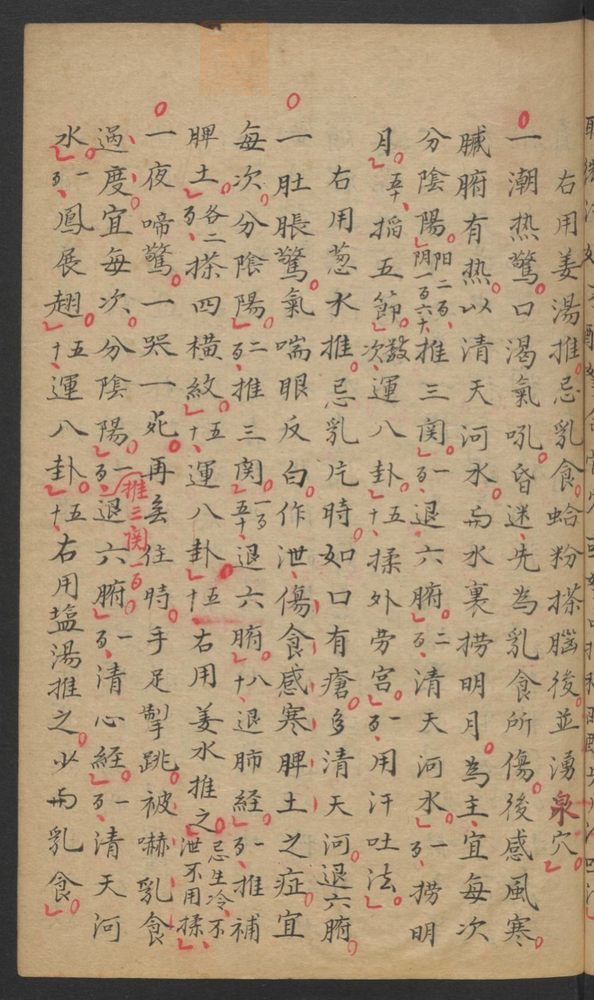 右用姜湯推。忌乳食。蛤粉搽腦後並湧泉穴。
一潮热驚。口渴氣吼。昏迷、先為乳食所傷。後感風寒。
臟腑有热。以清天河水。与水裏捞明月。為主、宜每次
分陰陽。阳二百、阴一百六十、推三関。一百、退六腑。二百、清天河水。一百、捞明
月。五十、掐五節。数次、運八卦。五十、揉外劳宫。一百、用汗吐法。
右用葱水推。忌乳片時。如口有瘡。多清天河。退六腑。
一肚脹驚。氣喘眼反白。作泄、傷食感寒。脾土之症。宜
每次。分陰陽。二百、推三関。一百五十、退六腑。八十、退肺経。一百、推補
脾土。各二百、搽四横紋。五十、運八卦。五十、右用姜水推之。忌生冷、不泄不用揉、
一夜啼驚。一哭一死。再無住時。手足掣跳。被嚇。乳食
過度。宜每次。分陰陽。一百、推三関一百。退六腑。一百、清心経。一百、清天河
水。一百、鳳展翅。五十、運八卦。五十、右用盐湯推之。少与乳食。